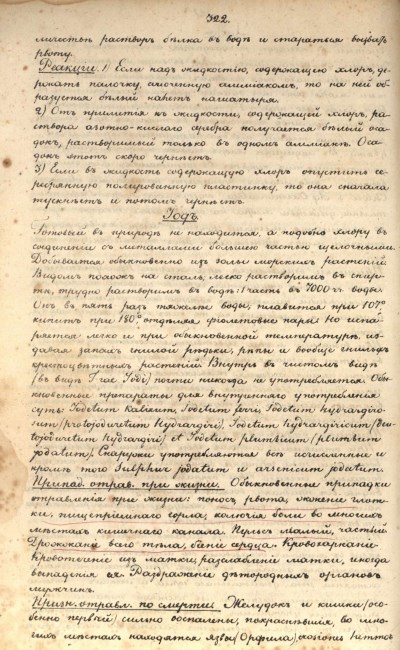 322.
личествѣ растворъ бѣлка въ водѣ и стараться вызвать
рвоту.
Реакціи. 1) Если надъ жидкостію, содержащею хлоръ, дер-
жать палочку, смоченную амміакомъ, то на ней об-
разуется бѣлый налетъ нашатыря.
2) Отъ прилитія къ жидкости, содержащей хлоръ, ра-
створа азотно-кислаго серебра получается бѣлый оса-
докъ, растворимый только въ одномъ амміакѣ. Оса-
докъ этотъ скоро чернѣетъ.
3) Если въ жидкость содержащую хлоръ опустить се-
ребрянную полированную пластинку, то она сначала
тускнѣетъ и потомъ чернѣетъ.
Іодъ.
Готовый въ природѣ не находится, а подобно хлору въ
соединеніи съ металлами большею частью щелочными.
Добывается обыкновенно изъ золы морскихъ растеній.
Видомъ похожъ на сталь, легко растворимъ въ спир-
тѣ, трудно растворимъ въ водѣ: 1 часть въ 7000 чч. воды.
Онъ въ пять разъ тяжелѣе воды, плавится при 107°
кипитъ при 180° отдѣляя фіолетовые пары; но испа-
ряется легко и при обыкновенной температурѣ, из-
давая запахъ гнилой рѣдьки, рѣпы и вообще гнилыхъ
крестоцвѣтныхъ растеній. Внутрь въ чистомъ видѣ
(въ видѣ T-rae Jodi) почти никогда не употребляется. Обы-
кновенные препараты для внутренняго употребленія
суть: Jodetum Kalicum, Jodetum ferri, Jodetum hydrargiro-
sum (protojoduretum Hydrargiri), Jodetum hydrargiricum (deu-
tojoduretum hydrargiri) et Jodetum plumbicum (plumbum
jodatum). Снаружи употребляются всѣ исчисленные и
кромѣ того Sulphur jodatum и arsenicum jodatum.
Припад. отрав. при жизни. Обыкновенные припадки
отравленія при жизни: поносъ, рвота, жженіе глот-
ки, пищепріемнаго горла, колючія боли во многихъ
мѣстахъ кишечнаго канала. Пульсъ малый, частый
Дрожжаніе всего тѣла, біеніе сердца. Кровохарканіе
Кровотеченіе изъ матки, разслабленіе матки, иногда
выпаденіе ея. Раздраженіе дѣтородныхъ органовъ
мужчинъ.
Призн. отравл. по смерти. Желудокъ и кишки (осо-
бенно первый) сильно воспалены, покраснѣвшія, во мно-
гихъ мѣстахъ находятся язвы (Орфила)